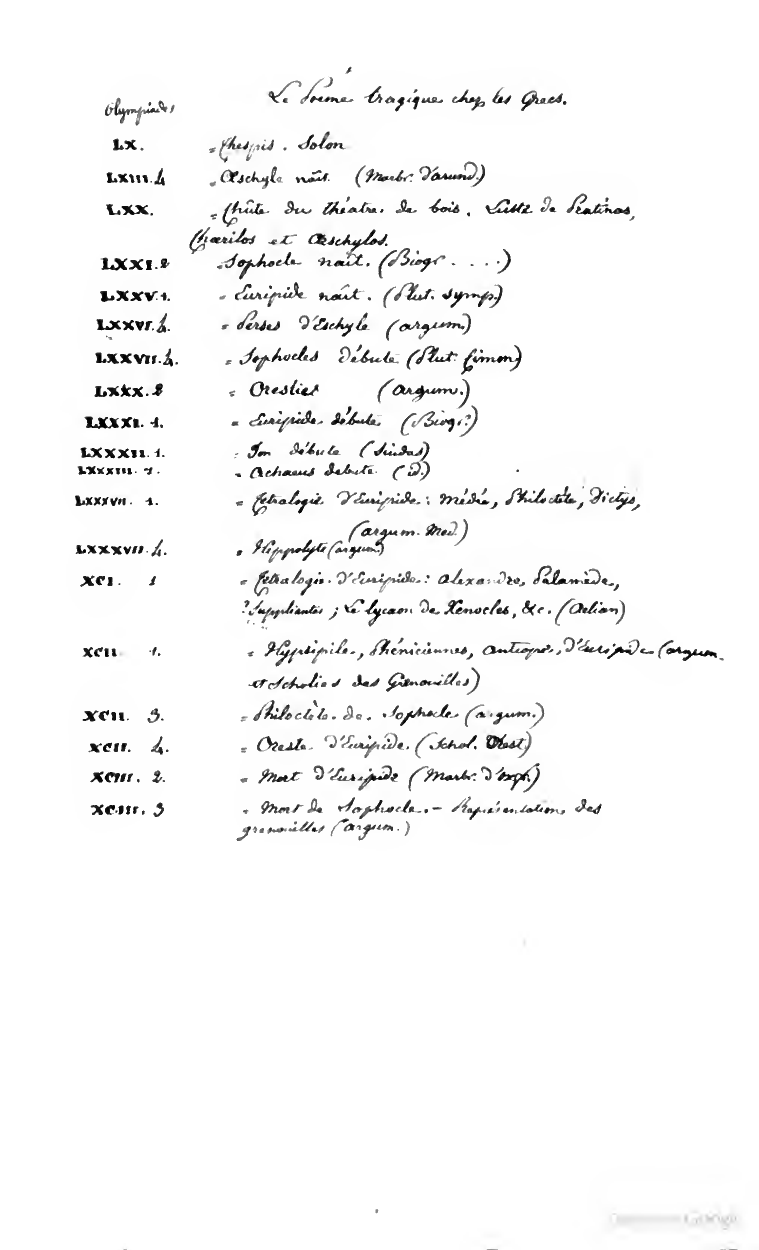 Le Poème tragique chez les Grecs.
Olympiades
LX. = Thespis. Solon
LXIII.4 = Œschyle naît. (Marbr. d'arund.)
LXX. = Chûte du théatre de bois. Lutte de Pratinas,
Chœrilos et Œschylos.
LXXI.2 = Sophocle naît. (Biogr . . . .)
LXXV.1. = Euripide naît. (Plut. symp.)
LXXVI.4. = Perses d'Eschyle (argum.)
LXXVII.4. = Sophocles débute (Plut. Cimon)
LXXX.2 = Oresties (argum.)
LXXXI. 1. = Euripide débute (Biogr?)
LXXXII. 1. = Ion débute (Suidas)
LXXXIII. 1. = Achaeus debute. (id.)
LXXXVII. 1. = Tétralogie d'Euripide: Médée, Philoctète, Dictys,
(argum. Med.)
LXXXVII.4. = Hippolyte (argum.)
XCI. 1 = Tétralogie d'Euripide: Alexandre, Palamède,
? Suppliantes; Le lycaon de Xenocles, &c. (Aelian)
XCII 1. = Hypsipile, Phéniciennes, Antiope, d'Euripide (argum.
et Scholies des Grenouilles)
XCII. 3. = Philoctète de Sophocle (argum.)
XCII. 4. = Oreste d'Euripide. (Schol. Orest)
XCIII. 2. = Mort d'Euripide (Marbr. d')
XCIII. 3 = Mort de Sophocle. - Représentation des
grenouilles (argum.)
Google